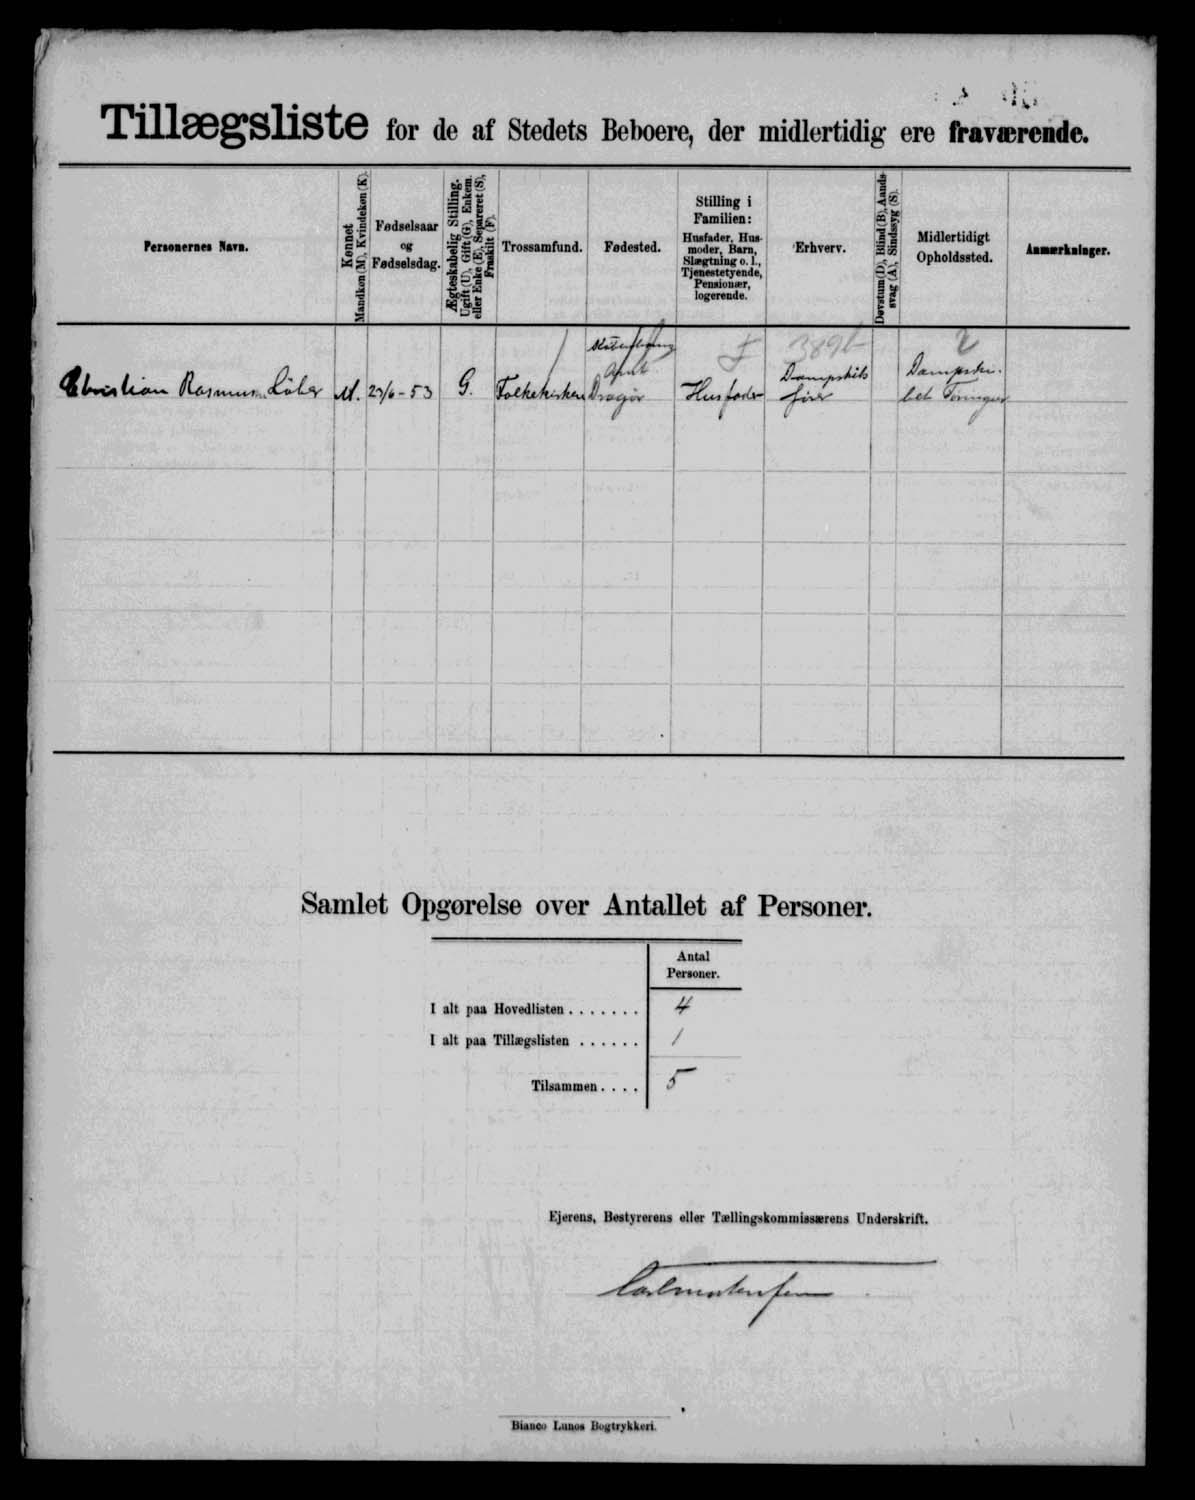 Tillægsliste for de af Stedets Beboere, der midlertidig ere fraværende.
Personernes Navn.
Kønnet
Mandkøn (M), Kvindekøn (K).
Fødselsaar
og
Fødselsdag.
Ægteskabelig Stilling.
Ugift (U), Gift (G), Enkem.
eller Enke (E), Separeret (S),
Fraskilt (F).
Trossamfund.
Fødested.
Stilling i
Familien:
Husfader, Hus-
moder, Barn,
Slægtning o. l.,
Tjenestetyende,
Pensionær,
logerende.
Erhverv.
Døvstum (D), Blind (B), Aands-
svag (A), Sindssyg (S).
Midlertidigt
Opholdssted.
Anmærkninger.
Christian Rasmussen
M.
23/6 - 53
G.
Folkekirken
Amt
Dragør
F
Husfader
Dampskibs
fører
2
Samlet Opgørelse over Antallet af Personer.
Antal
Personer.
I alt paa Hovedlisten . . . . . . . 4
I alt paa Tillægslisten . . . . . . 1
Tilsammen . . . . 5
Ejerens, Bestyrerens eller Tællingskommissærens Underskrift.
Bianco Lunos Bogtrykkeri.